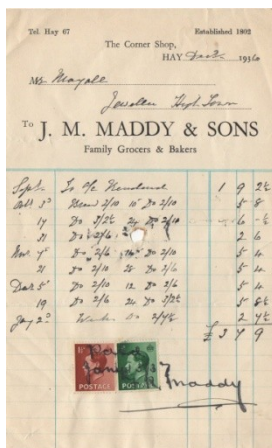 Tel. Hay 67 Established 1802
The Corner Shop,
HAY Dec 1936
Mr Mayall
Jeweller High Town
To J. M. MADDY & SONS
Family Grocers & Bakers
Sept To a/c Rendered 1 9 2½
Oct 3 Bread 2/10 10 Do 2/10 5 8
17 Do 3/2½ 24 Do 2/10 6 ½
31 Do 2/6
Nov 7 Do 2/6 Do 2/10 5 4
21 Do 2/10 28 Do 2/6 5 4
Dec 5 Do 2/10 12 Do 2/6 5 4
19 Do 2/6 24 Do 3/2½ 5 8½
Jany 2 Do 2/7½ 2 7½
£ 3 7 9
POSTAGE POSTAGE
Maddy